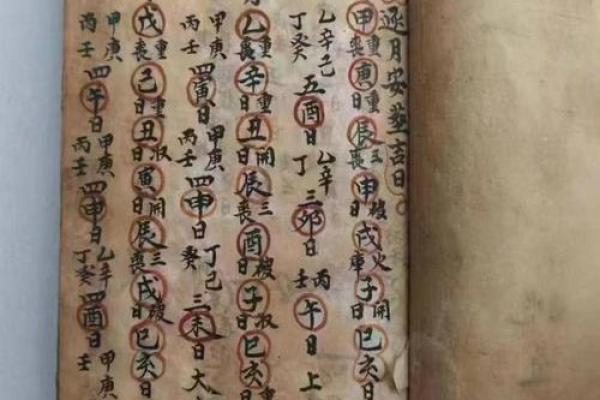 逐月安葬吉日。
甲重喪庚重日辰三喪申日戌火庫子開日巳亥日
乙辛己丁癸五酉日乙辛丁三卯日丙壬午日上
月乙重喪辛重日丑開日辰三喪酉日子收日巳亥日
甲庚丙壬四寅日甲庚丙壬四申日丁己癸三未日大
戊重喪己重日丑收日寅開日辰三喪戌日巳亥日
甲庚丙壬四午日甲庚丙壬四申日乙辛丁癸四酉日甲庚壬